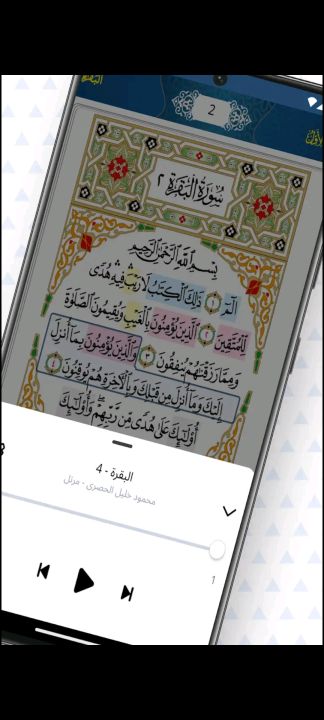 البقرة
2
الأول
سُورَةُ الْبَقَرَةِ ٢
بِسْمِ اللَّهِ الرَّحْمَٰنِ الرَّحِيمِ
الٓمٓ ١ ذَٰلِكَ ٱلْكِتَٰبُ لَا رَيْبَ ۛ فِيهِ ۛ هُدًى
لِّلْمُتَّقِينَ ٢ ٱلَّذِينَ يُؤْمِنُونَ بِٱلْغَيْبِ وَيُقِيمُونَ ٱلصَّلَوٰةَ
وَمِمَّا رَزَقْنَٰهُمْ يُنفِقُونَ ٣ وَٱلَّذِينَ يُؤْمِنُونَ بِمَآ أُنزِلَ
إِلَيْكَ وَمَآ أُنزِلَ مِن قَبْلِكَ وَبِٱلْءَاخِرَةِ هُمْ يُوقِنُونَ ٤
أُو۟لَٰٓئِكَ عَلَىٰ هُدًى مِّن رَّبِّهِمْ ۖ وَأُو۟لَٰٓئِكَ
البقرة - 4
محمود خليل الحصرى - مرتل
1